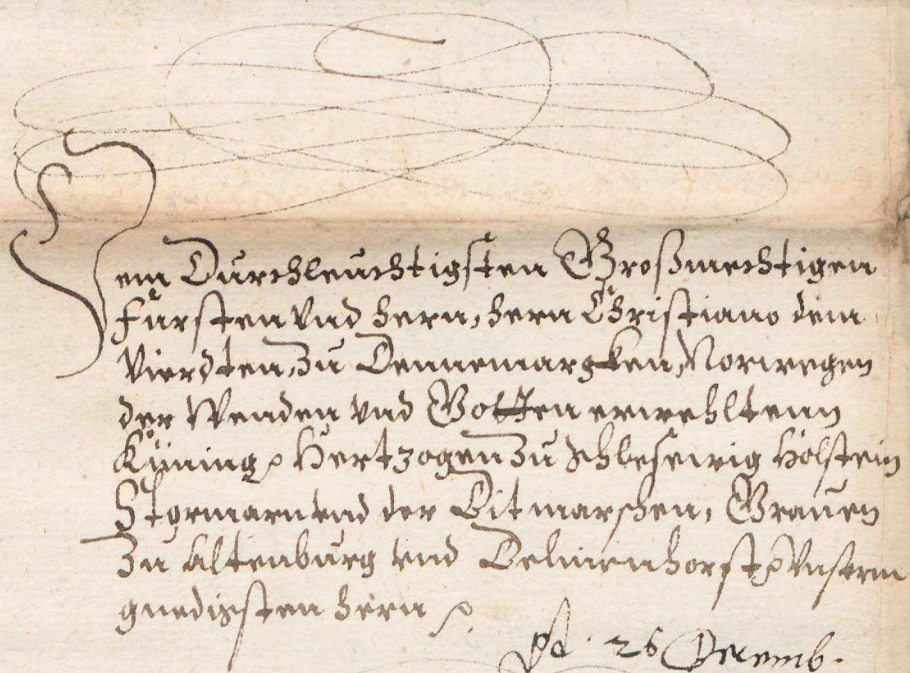 Dem Durchleuchtigsten Großmechtigen
Fursten vnd hern, hern Christiano dem
Vierdten, zu Dennemargken, Norwegen
der Wenden vnd Gotten erwehltenn
Küning, Hertzogen zu Schleßwig Holstein
Stormarn vnd der Ditmarschen, Grauen
zu Altenburg vnd Delmenhorst, Vnserm
gnedigsten hern
25 Decemb.